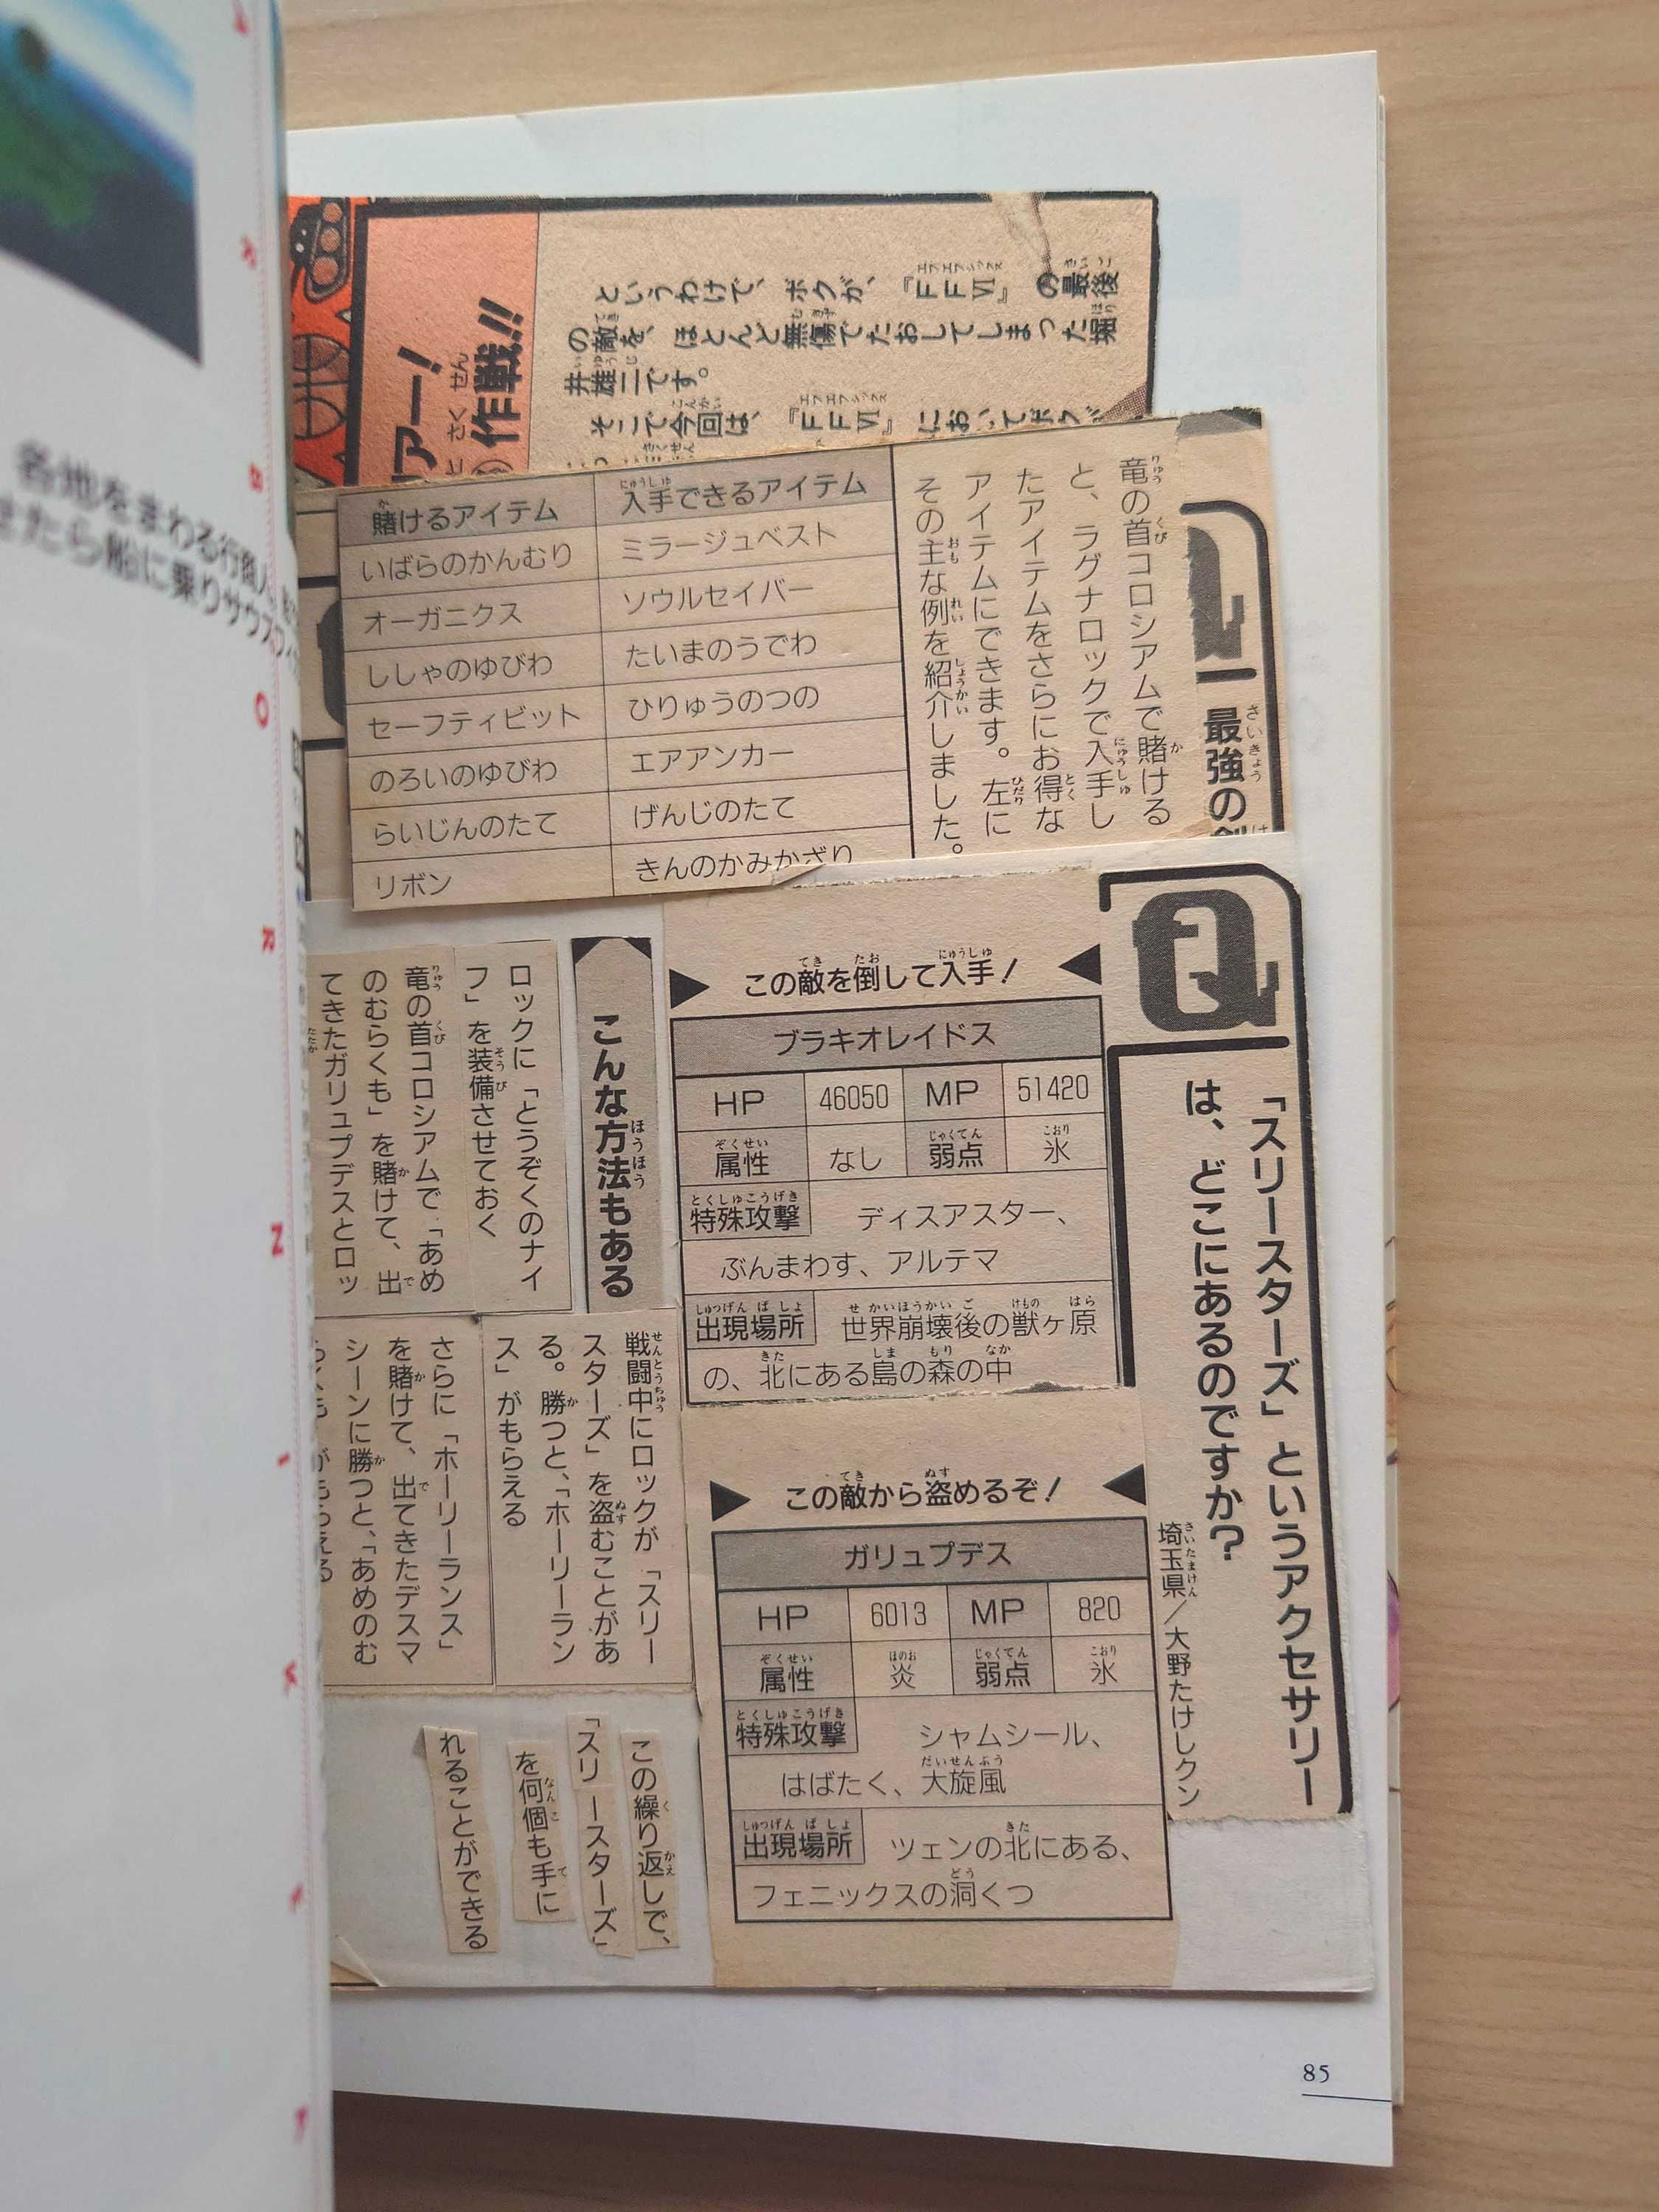 各地をまわる行商人
せたら船に乗りサウスフィ
アー!
作戦!!
というわけで、ボクが、『FFⅥ』の最後
の敵を、ほとんど無傷でたおしてしまった堀
井雄二です。
そこで今回は、『FFⅥ』においてボクが
最強の
竜の首コロシアムで賭ける
と、ラグナロックで入手し
たアイテムをさらにお得な
アイテムにできます。左に
その主な例を紹介しました。
賭けるアイテム 入手できるアイテム
いばらのかんむり ミラージュベスト
オーガニクス ソウルセイバー
ししゃのゆびわ たいまのうでわ
セーフティビット ひりゅうのつの
のろいのゆびわ エアアンカー
らいじんのたて げんじのたて
リボン きんのかみかざり
Q
「スリースターズ」というアクセサリー
は、どこにあるのですか?
埼玉県/大野たけしクン
この敵を倒して入手!
ブラキオレイドス
HP 46050 MP 51420
属性 なし 弱点 氷
特殊攻撃 ディスアスター、
ぶんまわす、アルテマ
出現場所 世界崩壊後の獣ヶ原
の、北にある島の森の中
この敵から盗めるぞ!
ガリュプデス
HP 6013 MP 820
属性 炎 弱点 氷
特殊攻撃 シャムシール、
はばたく、大旋風
出現場所 ツェンの北にある、
フェニックスの洞くつ
こんな方法もある
ロックに「とうぞくのナイ
フ」を装備させておく
竜の首コロシアムで「あめ
のむらくも」を賭けて、出
てきたガリュプデスとロッ
戦闘中にロックが「スリー
スターズ」を盗むことがあ
る。勝つと、「ホーリーラン
ス」がもらえる
さらに「ホーリーランス」
を賭けて、出てきたデスマ
シーンに勝つと、「あめのむ
らくも」がもらえる
この繰り返しで、
「スリースターズ」
を何個も手に
れることができる
85